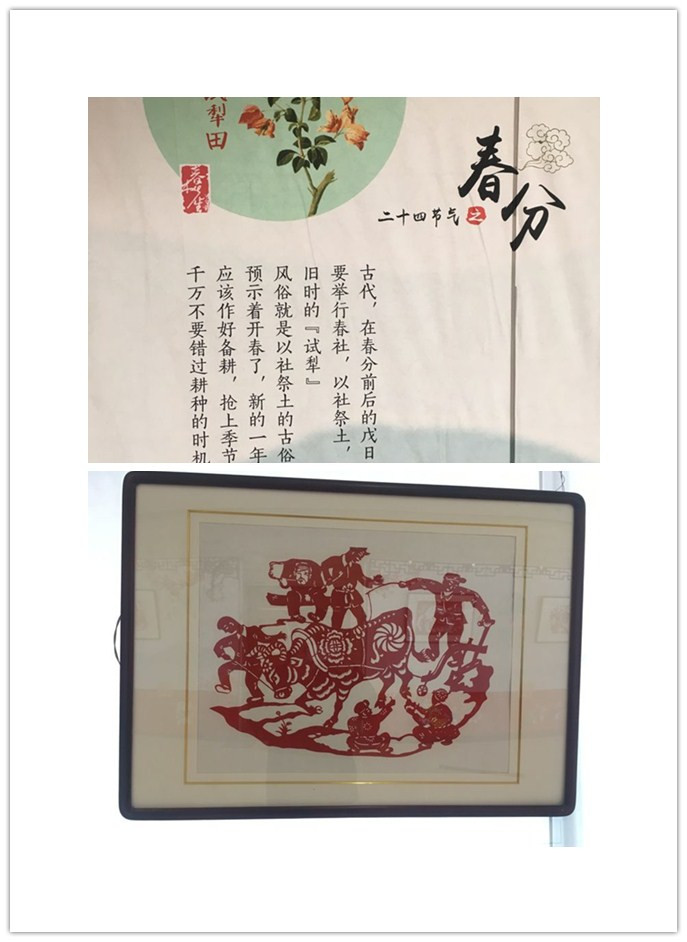 春分
二十四节气之
古代，在春分前后的戊日
要举行春社，以社祭土，
旧时的『试犁』
风俗就是以社祭土的古俗
预示着开春了，新的一年
应该作好备耕，抢上季节
千万不要错过耕种的时机
犁田